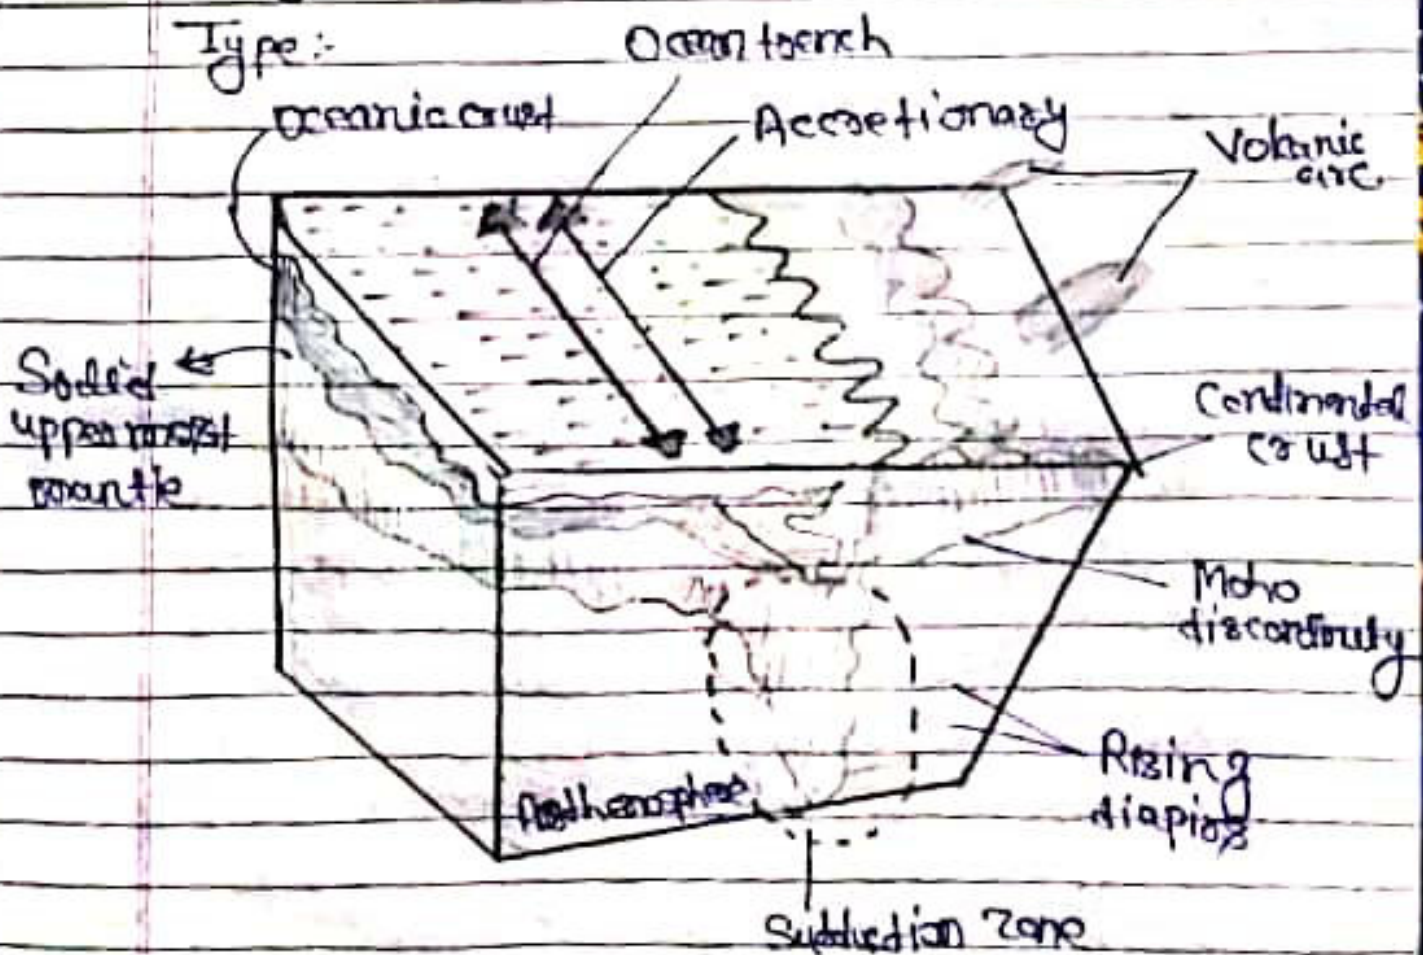 Type :-
Ocean trench
Oceanic crust
Accretionary
Volcanic
arc.
Solid
uppermost
mantle
Continental
crust
Moho
discontinuity
Rising
diapirs
Asthenosphere
Subduction Zone